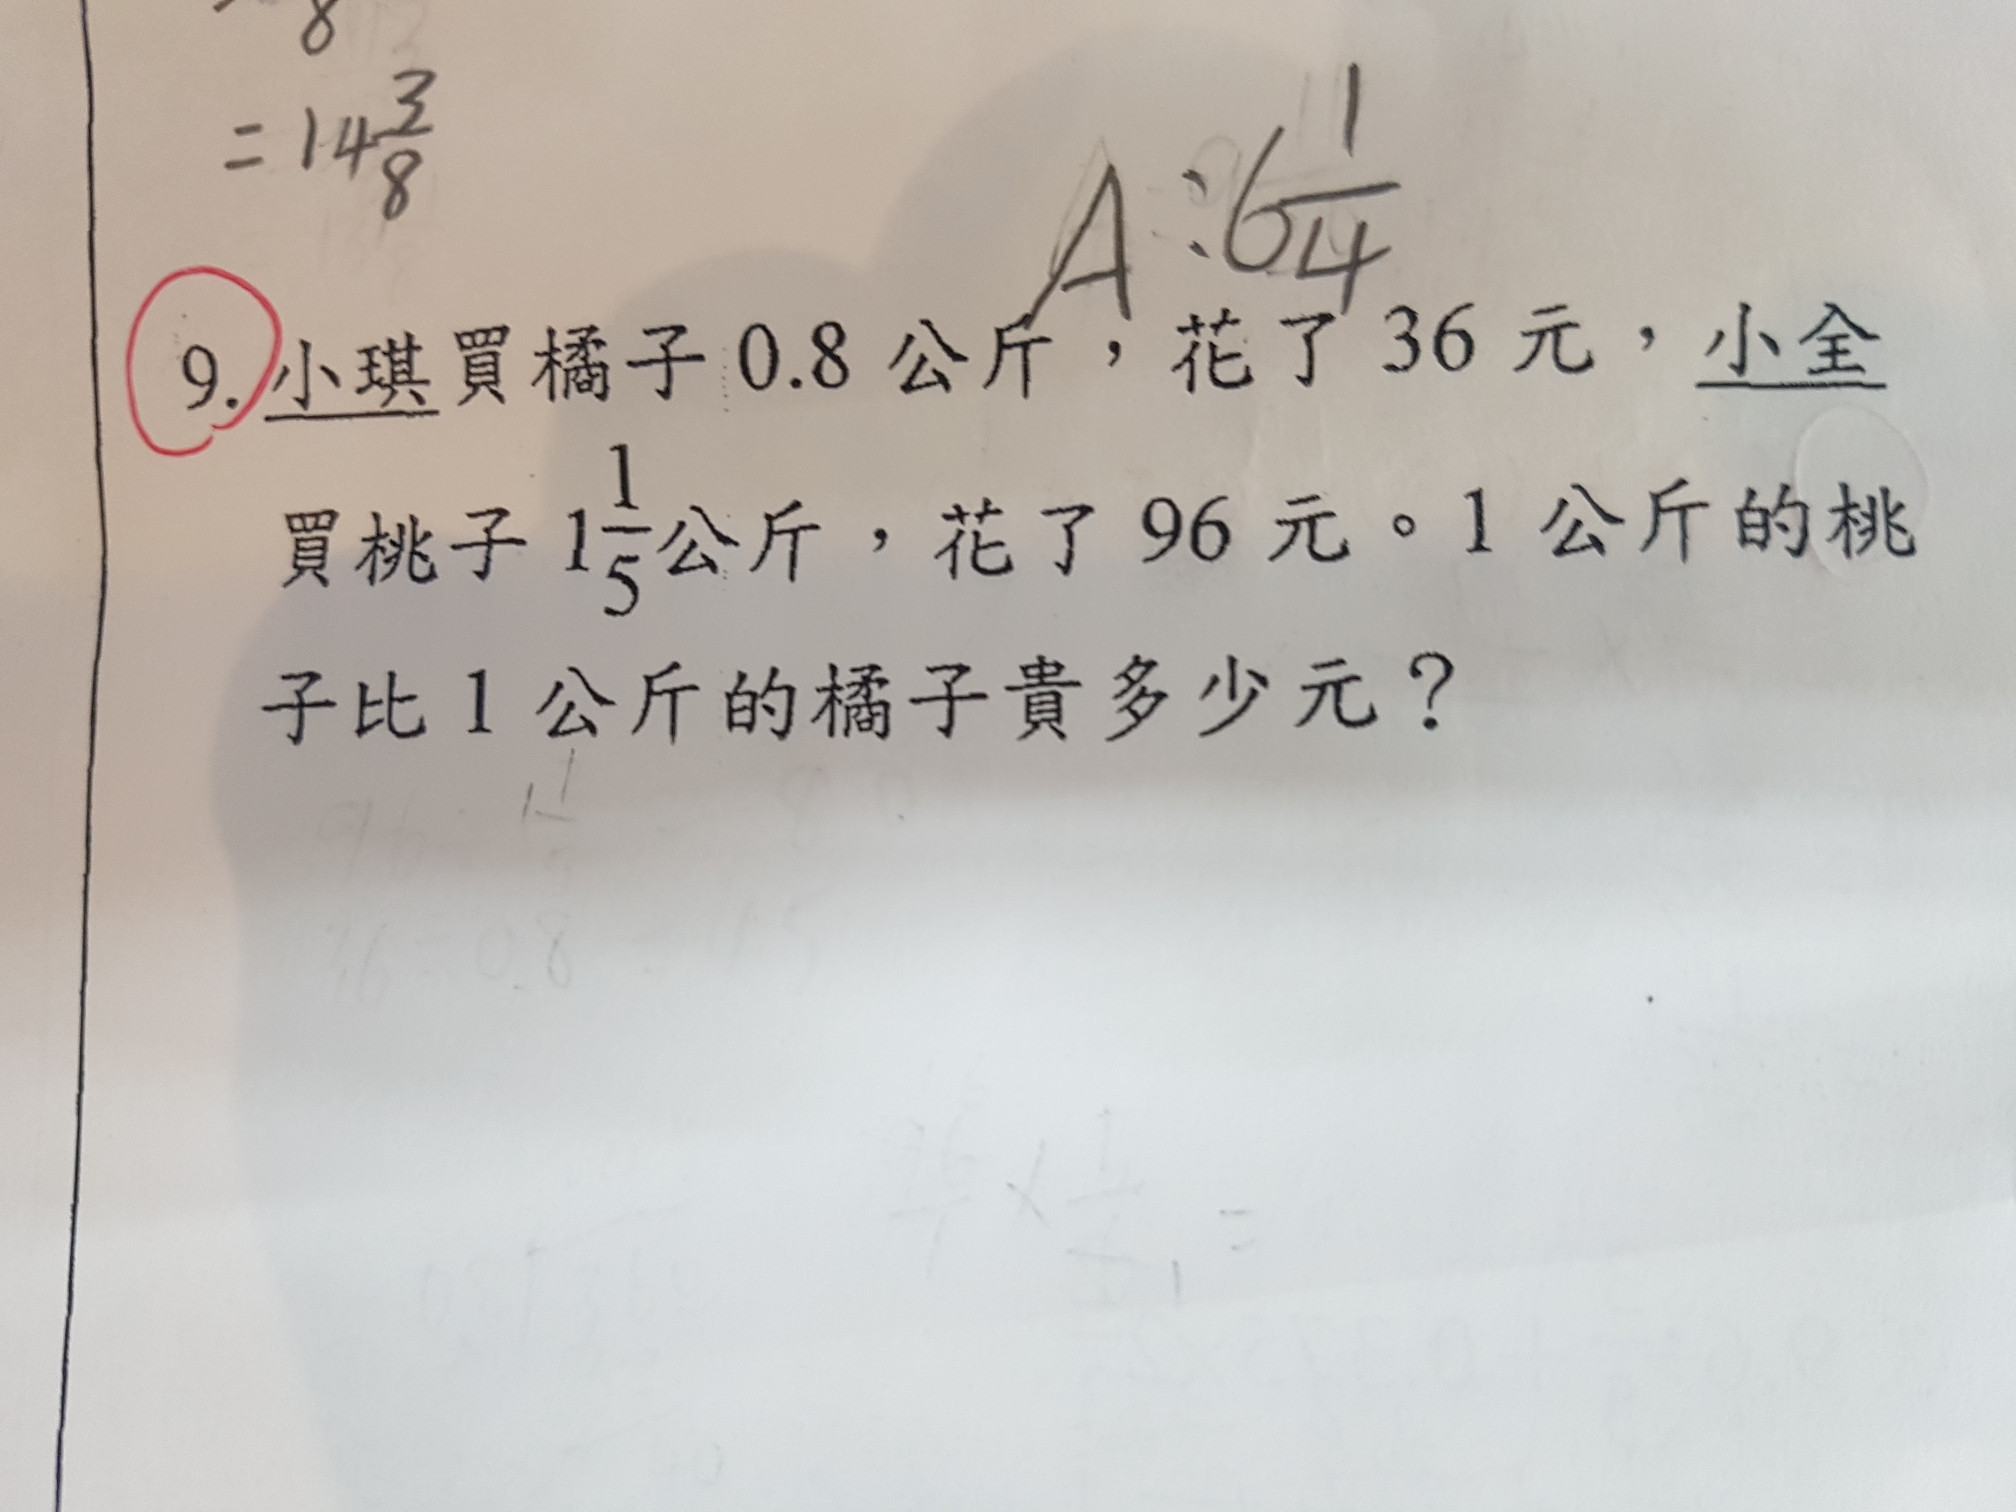 8
= 14 3/8
A:6 1/4
9. 小琪買橘子 0.8 公斤，花了 36 元，小全
買桃子 1 1/5 公斤，花了 96 元。1 公斤的桃
子比 1 公斤的橘子貴多少元？